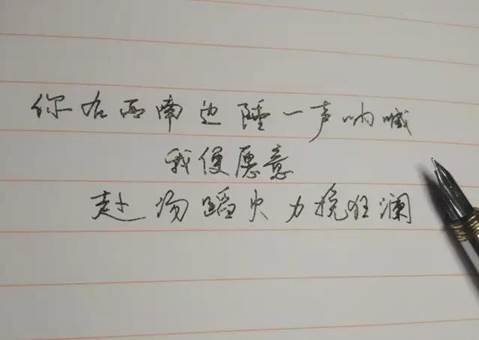 你在西南边陲一声呐喊
我便愿意
赴汤蹈火力挽狂澜